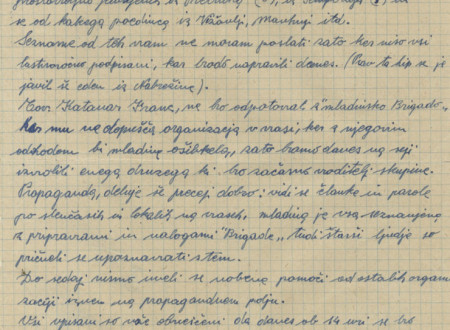 se od kakega posednca iz Vižovlj, Mavhinj itd.
Sezname od teh vam ne moram poslati zato ker niso vsi
lastnoročno podpisani, kar bodo napravili danes. (Rav ta hip se je
javil še eden iz Nabrežine).
Tov. Katavar Franc, ne bo odpotoval z mladinsko Brigado"
ker mu ne dopušča organizacija v vasi, ker z njegovim
odhodom bi mladina ošibkela, zato bomo danes na seji
izvolili enega druzega ki bo začasno voditelj skupine.
Propaganda, deluje še precej dobro: vidi se članke in parole
po stenčasih in lokalih na vaseh. mladina je vsa seznanjena
z pripravami in nalogami Brigade" tudi starši ljudje so
pričneli se upoznavati s tem.
Do sedaj nismo imeli še nobene pomoči od ostalih organi
zacij izven na propagandnem polju.
Vsi vpisani so več obveščeni da danes ob 14 uri se bo